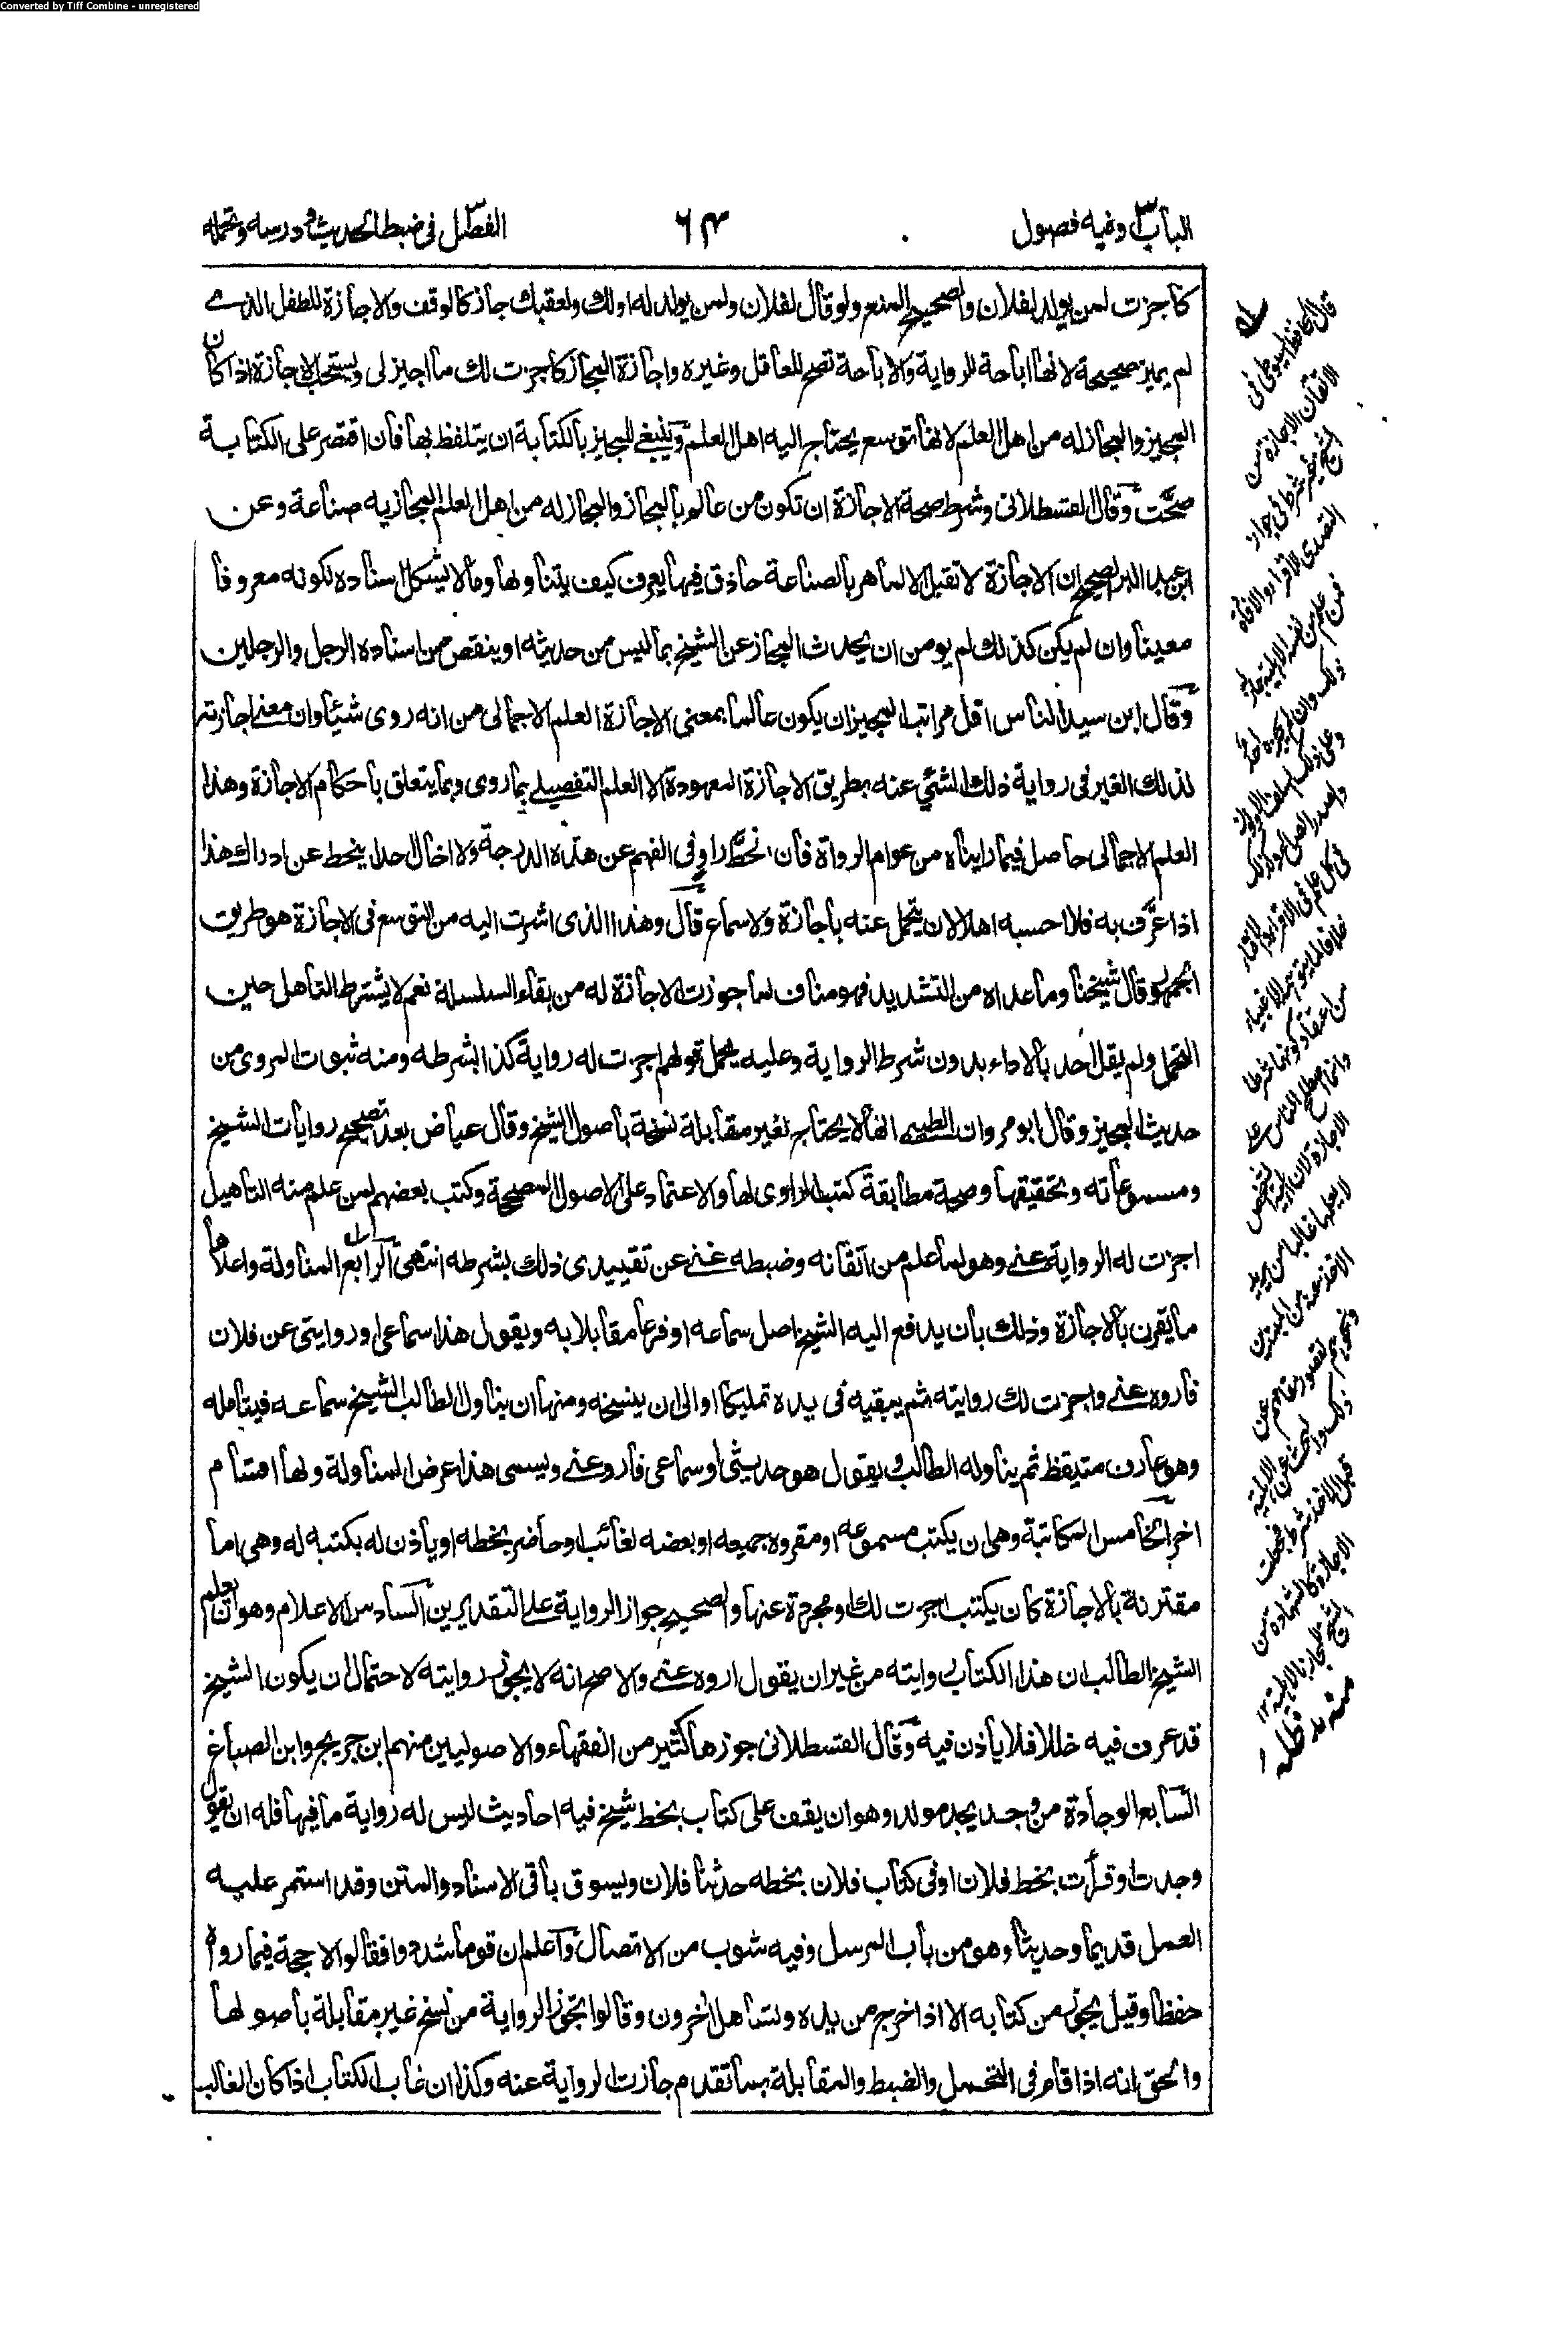 Converted by Tiff Combine - unregistered
الباب ٣ وفيه فصول
٦٣
الفصل فى ضبط الحديث ودرسه وتحمله
كاجزت لمن يولد لفلان والصحيح المنع ولو قال لفلان ولمن يولد له اولك ولعقبك جاز كالوقف والاجازة للطفل الذے
لم يميز صحيحة لانها اباحة للرواية والاباحة تصح للعاقل وغيره واجازة المجاز كاجزت لك ما اجيز لى ويستحب الاجازة اذا كان
المجيز والمجاز له من اهل العلم لانها توسع يحتاج اليه اهل العلم وينبغى للمجيز بالكتابة ان يتلفظ بها فان اقتصر على الكتابة
صحت وقال القسطلانى وشرط صحة الاجازة ان تكون من عالم بالمجاز والمجاز له من اهل العلم المجاز به صناعة وعن
ابن عبد البر الصحيح ان الاجازة لا تقبل الا لماهر بالصناعة حاذق فيها يعرف كيف يتناولها ومالا يشكل اسناده لكونه معروفا
معينا وان لم يكن كذلك لم يومن ان يحدث المجاز عن الشيخ بما ليس من حديثه او ينقص من اسناده الرجل والرجلين
وقال ابن سيد الناس اقل مراتب المجيز ان يكون عالما بمعنى الاجازة العلم الاجمالى من انه روى شيئا وان معنى اجازته
لذلك الغير فى رواية ذلك الشئ عنه بطريق الاجازة المعهودة الا العلم التفصيلے بما روى وبما يتعلق باحكام الاجازة وهذا
العلم الاجمالى حاصل فيما رايناه من عوام الرواة فان انحط راو فى الفهم عن هذه الدرجة ولا اخال احدا ينحط عن ادراك هذا
اذا عرف به فلا احسبه اهلا لان يتحمل عنه باجازة ولا سماع قال وهذا الذى اشرت اليه من التوسع فى الاجازة هو طريق
الجمهور قال شيخنا وما عداه من التشديد فهو مناف لما جوزت الاجازة له من بقاء السلسلة نعم لا يشترط التاهل حين
التحمل ولم يقل احد بالاداء بدون شرط الرواية وعليه يحمل قولهم اجزت له رواية كذا بشرطه ومنه ثبوت المروى من
حديث المجيز وقال ابو مروان الطبنى انها لا يحتاج لغير مقابلة نسخة باصول الشيخ وقال عياض بعد تصحيح روايات الشيخ
ومسموعاته وتحقيقها وصحة مطابقة كتب الراوى لها والاعتماد على الاصول المصححة وكتب بعضهم لمن علم منه التاهيل
اجزت له الرواية عنے وهو لما علم من اتقانه وضبطه غنے عن تقييدى ذلك بشرطه انتهى الرابع المناولة واعلاها
ما يقرن بالاجازة وذلك بان يدفع اليه الشيخ اصل سماعه او فرعا مقابلا به ويقول هذا سماعى او روايتى عن فلان
فاروه عنے واجزت لك روايته ثم يبقيه فى يده تمليكا او الى ان ينسخه ومنها ان يناول الطالب الشيخ سماعه فيتامله
وهو عارف متيقظ ثم يناوله الطالب ويقول هو حديثى او سماعى فاروعنے ويسمى هذا عرض المناولة ولها اقسام
اخر الخامس المكاتبة وهى ان يكتب مسموعه او مقروه جميعه او بعضه لغائب او حاضر بخطه او ياذن له بكتبه له وهى اما
مقترنة بالاجازة كان يكتب اجزت لك او مجردة عنها والصحيح جواز الرواية على التقديرين السادس الاعلام وهو ان يعلم
الشيخ الطالب ان هذا الكتاب روايته من غير ان يقول اروه عنے والاصح انه لا يجوز روايته لاحتمال ان يكون الشيخ
قد عرف فيه خللا فلا ياذن فيه وقال القسطلانى جوزها كثير من الفقهاء والاصوليين منهم ابن جريج وابن الصباغ
السابع الوجادة من وجد يجد مولد وهو ان يقف على كتاب بخط شيخ فيه احاديث ليس له رواية ما فيها فله ان يقول
وجدت او قرأت بخط فلان او فى كتاب فلان بخطه حدثنا فلان ويسوق باقى الاسناد والمتن وقد استمر عليه
العمل قديما وحديثا وهو من باب المرسل وفيه شوب من الاتصال واعلم ان قوما شددوا فقالوا لا حجة فيما رواه
حفظا وقيل يجوز من كتابه الا اذا خرج من يده وتساهل اخرون وقالوا تجوز الرواية من نسخ غير مقابلة باصولها
والحق انه اذا قام فى التحمل والضبط والمقابلة بما تقدم جازت الرواية عنه وكذا ان غاب الكتاب اذا كان الغالب
قال الحافظ السيوطى فى
الاتقان الاجازة من
الشيخ غير شرط فى جواز
التصدى للاقراء والافادة
فمن علم من نفسه الاهلية جاز له
ذلك وان لم يجزه احد
وعلى ذلك السلف الاولون
والصدر الصالح وكذلك
فى كل علم فى الاقراء والافتاء
خلافا لما يتوهمه الاغبياء
من اعتقاد كونها شرطا
وانما اصطلح الناس على
الاجازة لان اهلية الشخص
لا يعلمها غالبا من يريد
الاخذ عنه من المبتدئين
ونحوهم لقصور مقامهم عن
ذلك والبحث عن الاهلية
قبل الاخذ شرط فجعلت
الاجازة كالشهادة من
الشيخ للمجاز بالاهلية ١٢
منه مد ظله